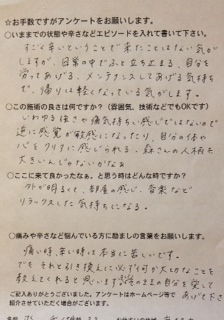 ☆お手数ですがアンケートをお願いします。
○いままでの状態や辛さなどエピソードを入れて書いて下さい。
すごく辛いということで来たことはない気が
しますが、日常の中でふと立ち止まる、自分を
労ってあげる、メンテナンスしてあげる気持ち
で、帰りは軽くなっている気がします。
○この施術の良さは何ですか?(雰囲気、技術などでもOKです)
いわゆる強さや痛気持ち感じではないので
逆に感覚が敏感になったり、自分の体や
心をクリアに感じられる。森さんの人柄も
大きいんじゃないかなぁ
○ここに来て良かったなぁ、と思う時はどんな時ですか?
外が明るくて、部屋の感じ、音楽など
リラックスした気持ちになる。
○痛みや辛さなど悩んでいる方に励ましの言葉をお願いします。
痛い時、辛い時は本当に苦しいです。
でも それと引き換えに必ず何か大切なことを
教えてくれると思います
ご記入ありがとうございました。アンケートはホームページ等で
紹介させていただく場合がございます。